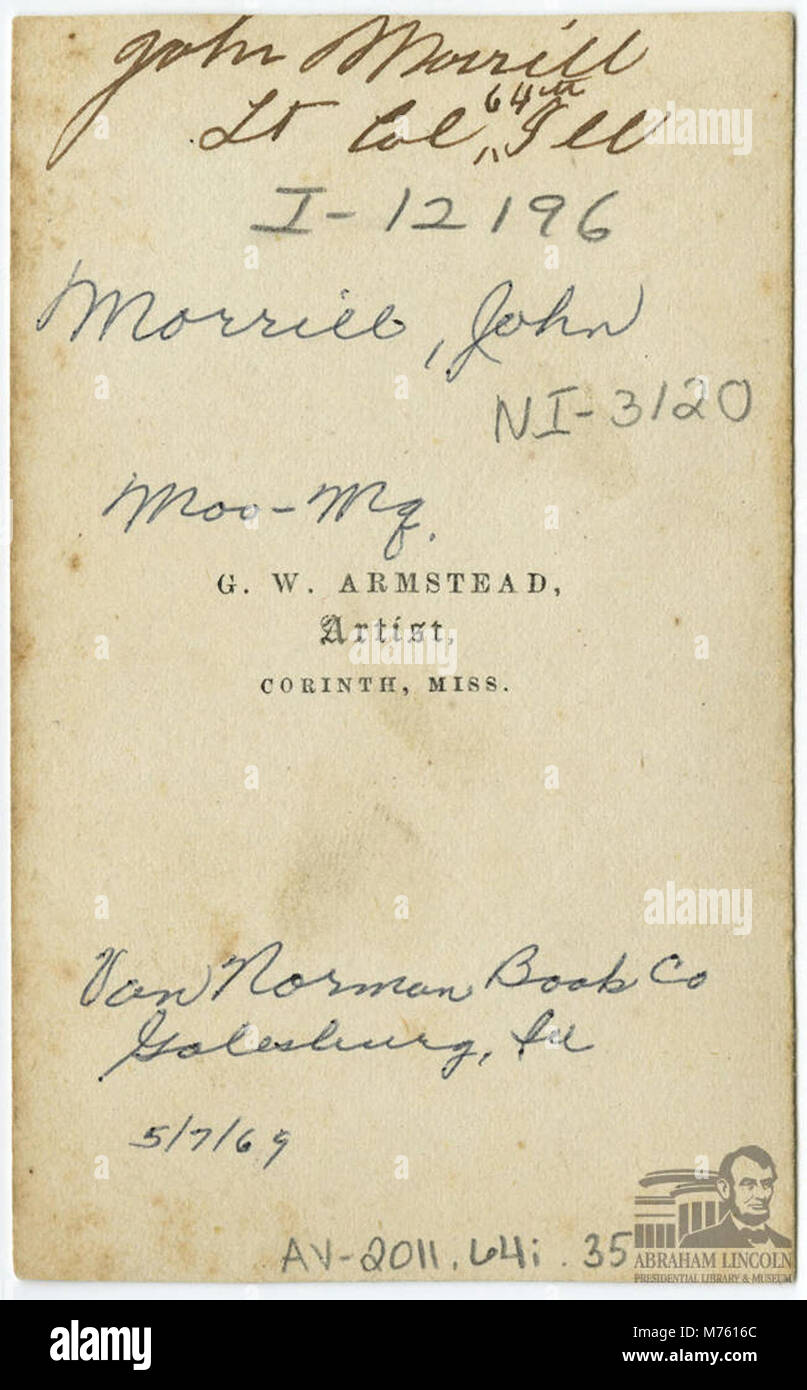 John Morrill
Lt Col, 64th Ill
I-12196
Morrill, John
NI-3120
Moo-Mq.
G. W. ARMSTEAD,
Artist,
CORINTH, MISS.
Van Norman Book Co
Galesburg, Ill
5/7/69
AV-2011.64i.35
ABRAHAM LINCOLN
PRESIDENTIAL LIBRARY & MUSEUM
alamy
Image ID: M7616C
www.alamy.com